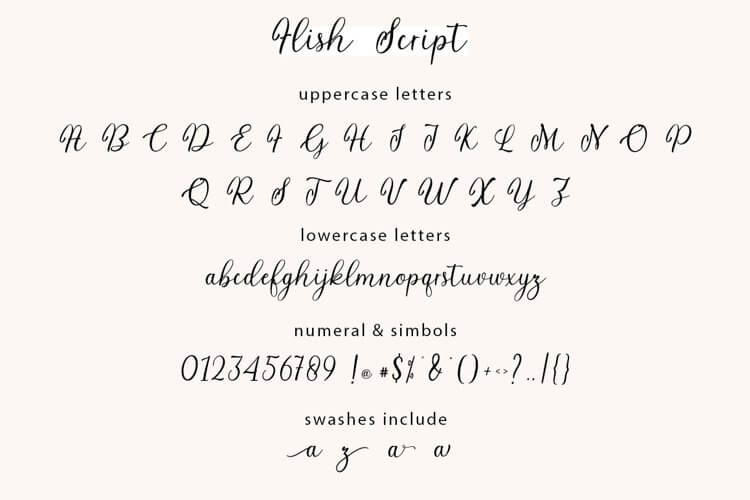 Flish Script
uppercase letters
A B C D E F G H I J K L M N O P
Q R S T U V W X Y Z
lowercase letters
abcdefghijklmnopqrstuvwxyz
numeral & simbols
0123456789 !@#$%'&'()+<>?..|{}
swashes include
a z a a